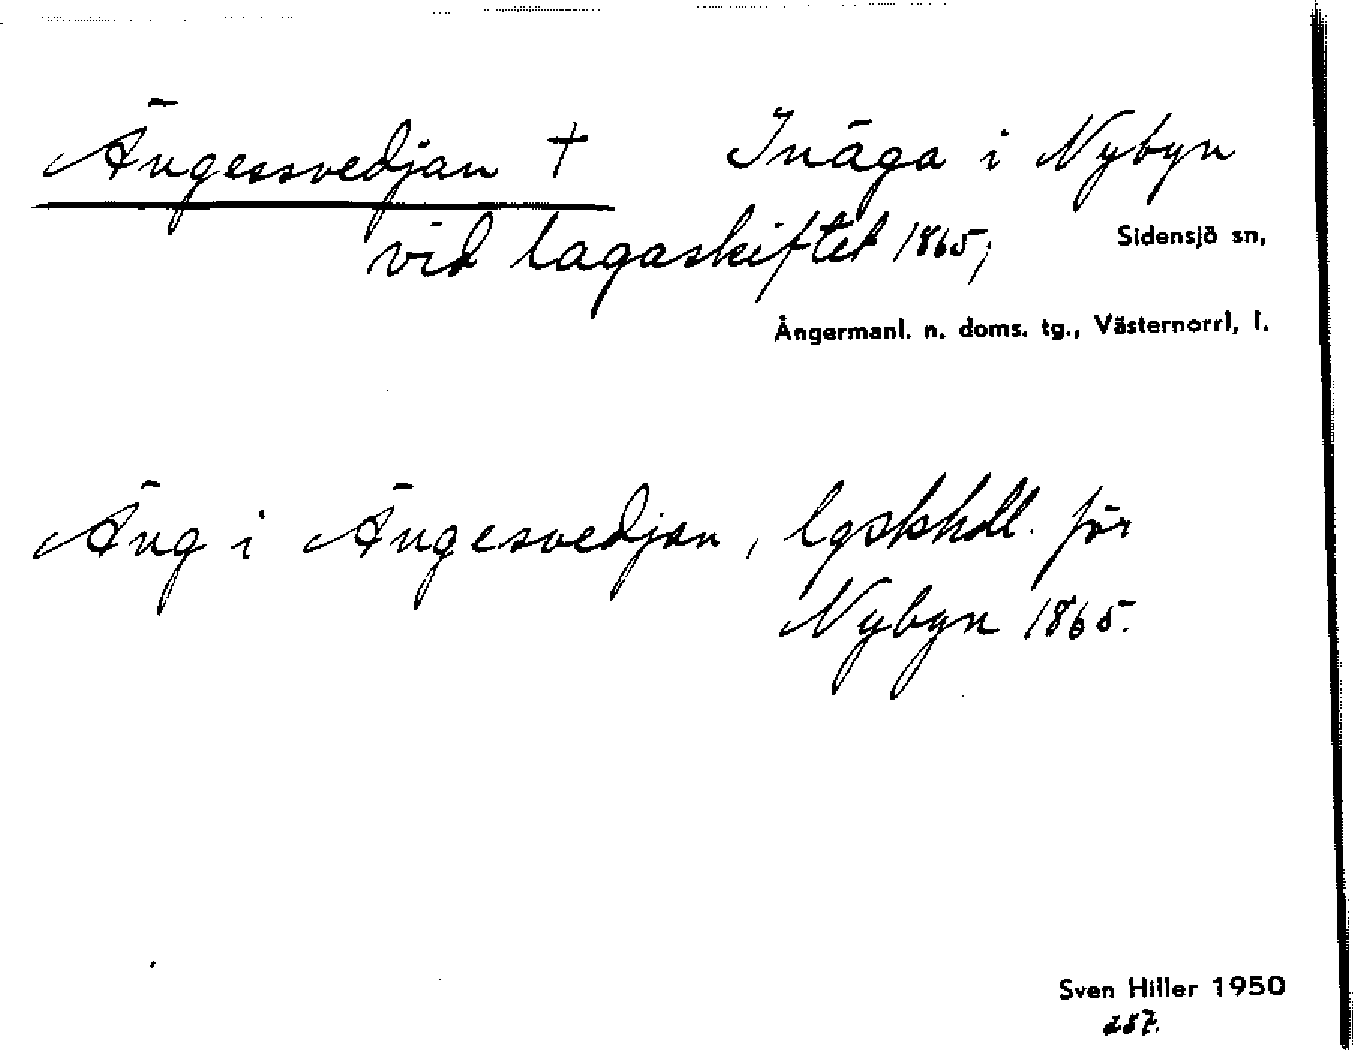 Ängessvedjan † Inäga i Nybyn
vid lagaskiftet 1865;
Sidensjö sn,
Ångermanl. n. doms. tg., Västernorrl, l.
Äng i Ängesvedjan, lgskhdl. för
Nybyn 1865.
Sven Hiller 1950
287.